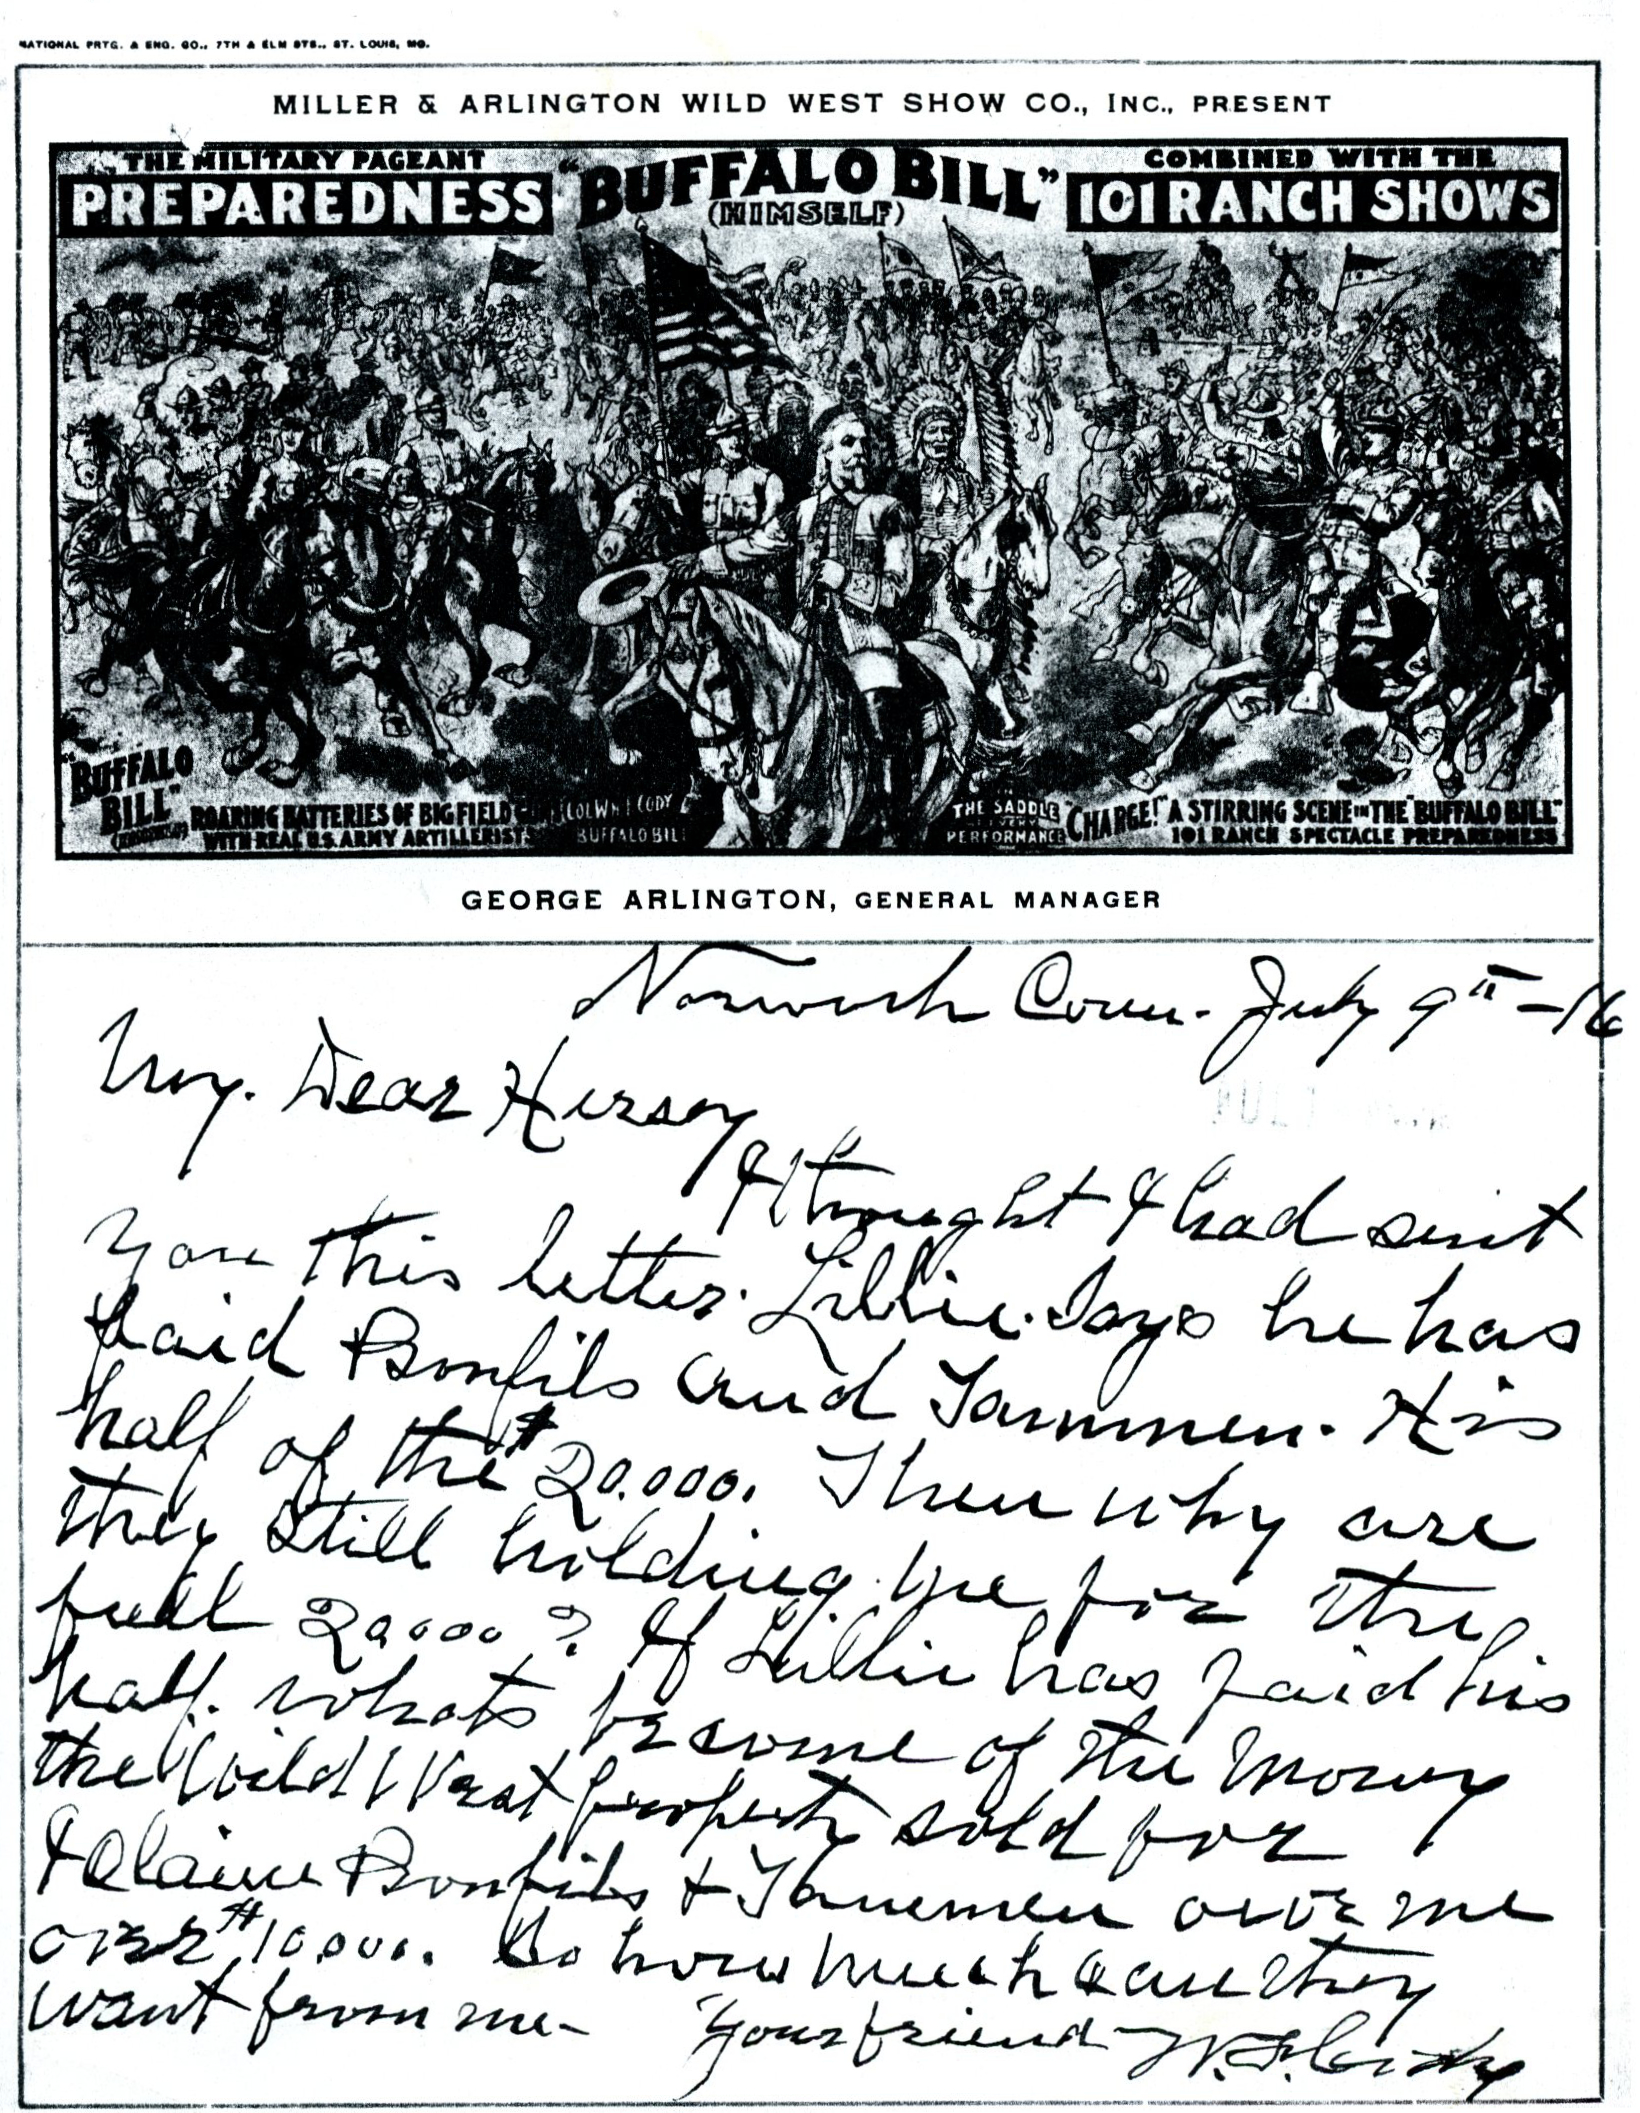 NATIONAL PRTG. & ENG. CO., 7TH & ELM STS., ST. LOUIS, MO.
MILLER & ARLINGTON WILD WEST SHOW CO., INC., PRESENT
THE MILITARY PAGEANT
PREPAREDNESS
"BUFFALO BILL"
(HIMSELF)
COMBINED WITH THE
101 RANCH SHOWS
"BUFFALO
BILL"
(HIMSELF)
ROARING BATTERIES OF BIG FIELD GUNS
WITH REAL U.S. ARMY ARTILLERISTS
COL. WM. F. CODY
BUFFALO BILL
THE SADDLE
PERFORMANCE
"CHARGE!" A STIRRING SCENE IN THE "BUFFALO BILL"
101 RANCH SPECTACLE PREPAREDNESS
GEORGE ARLINGTON, GENERAL MANAGER
Norwich Conn. July 9th - 16
My. Dear Hersey
I thought I had sent
you this letter. Lillie. Says he has
paid Bonfils and Tammen. His
half of the $20.000. Then why are
they still holding me for the
full 20000? If Lillie has paid his
half. whats become of the Money
the Wild West property sold for
I Claim Bonfils & Tammen owe me
over $10.000. So how much can they
want from me-
Your friend W. F. Cody